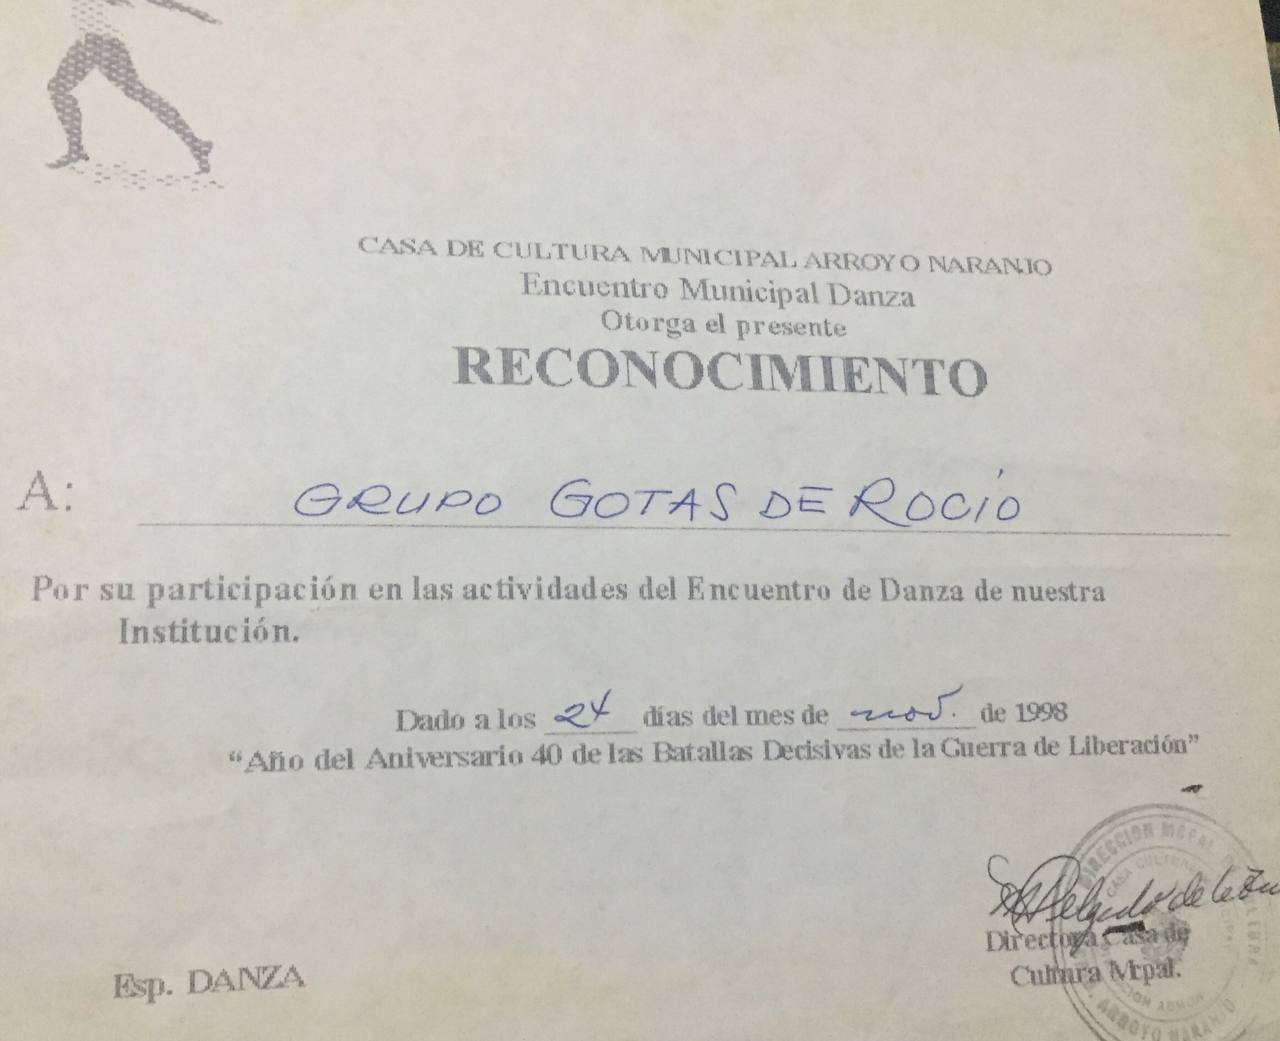 CASA DE CULTURA MUNICIPAL ARROYO NARANJO
Encuentro Municipal Danza
Otorga el presente
RECONOCIMIENTO
A: GRUPO GOTAS DE ROCÍO
Por su participación en las actividades del Encuentro de Danza de nuestra
Institución.
Dado a los 24 días del mes de nov. de 1998
“Año del Aniversario 40 de las Batallas Decisivas de la Guerra de Liberación”
Delgado de León
Directora Casa de
Cultura Mcpal.
Esp. DANZA
DIRECCION MCPAL
CASA CULTURA
ARROYO NARANJO